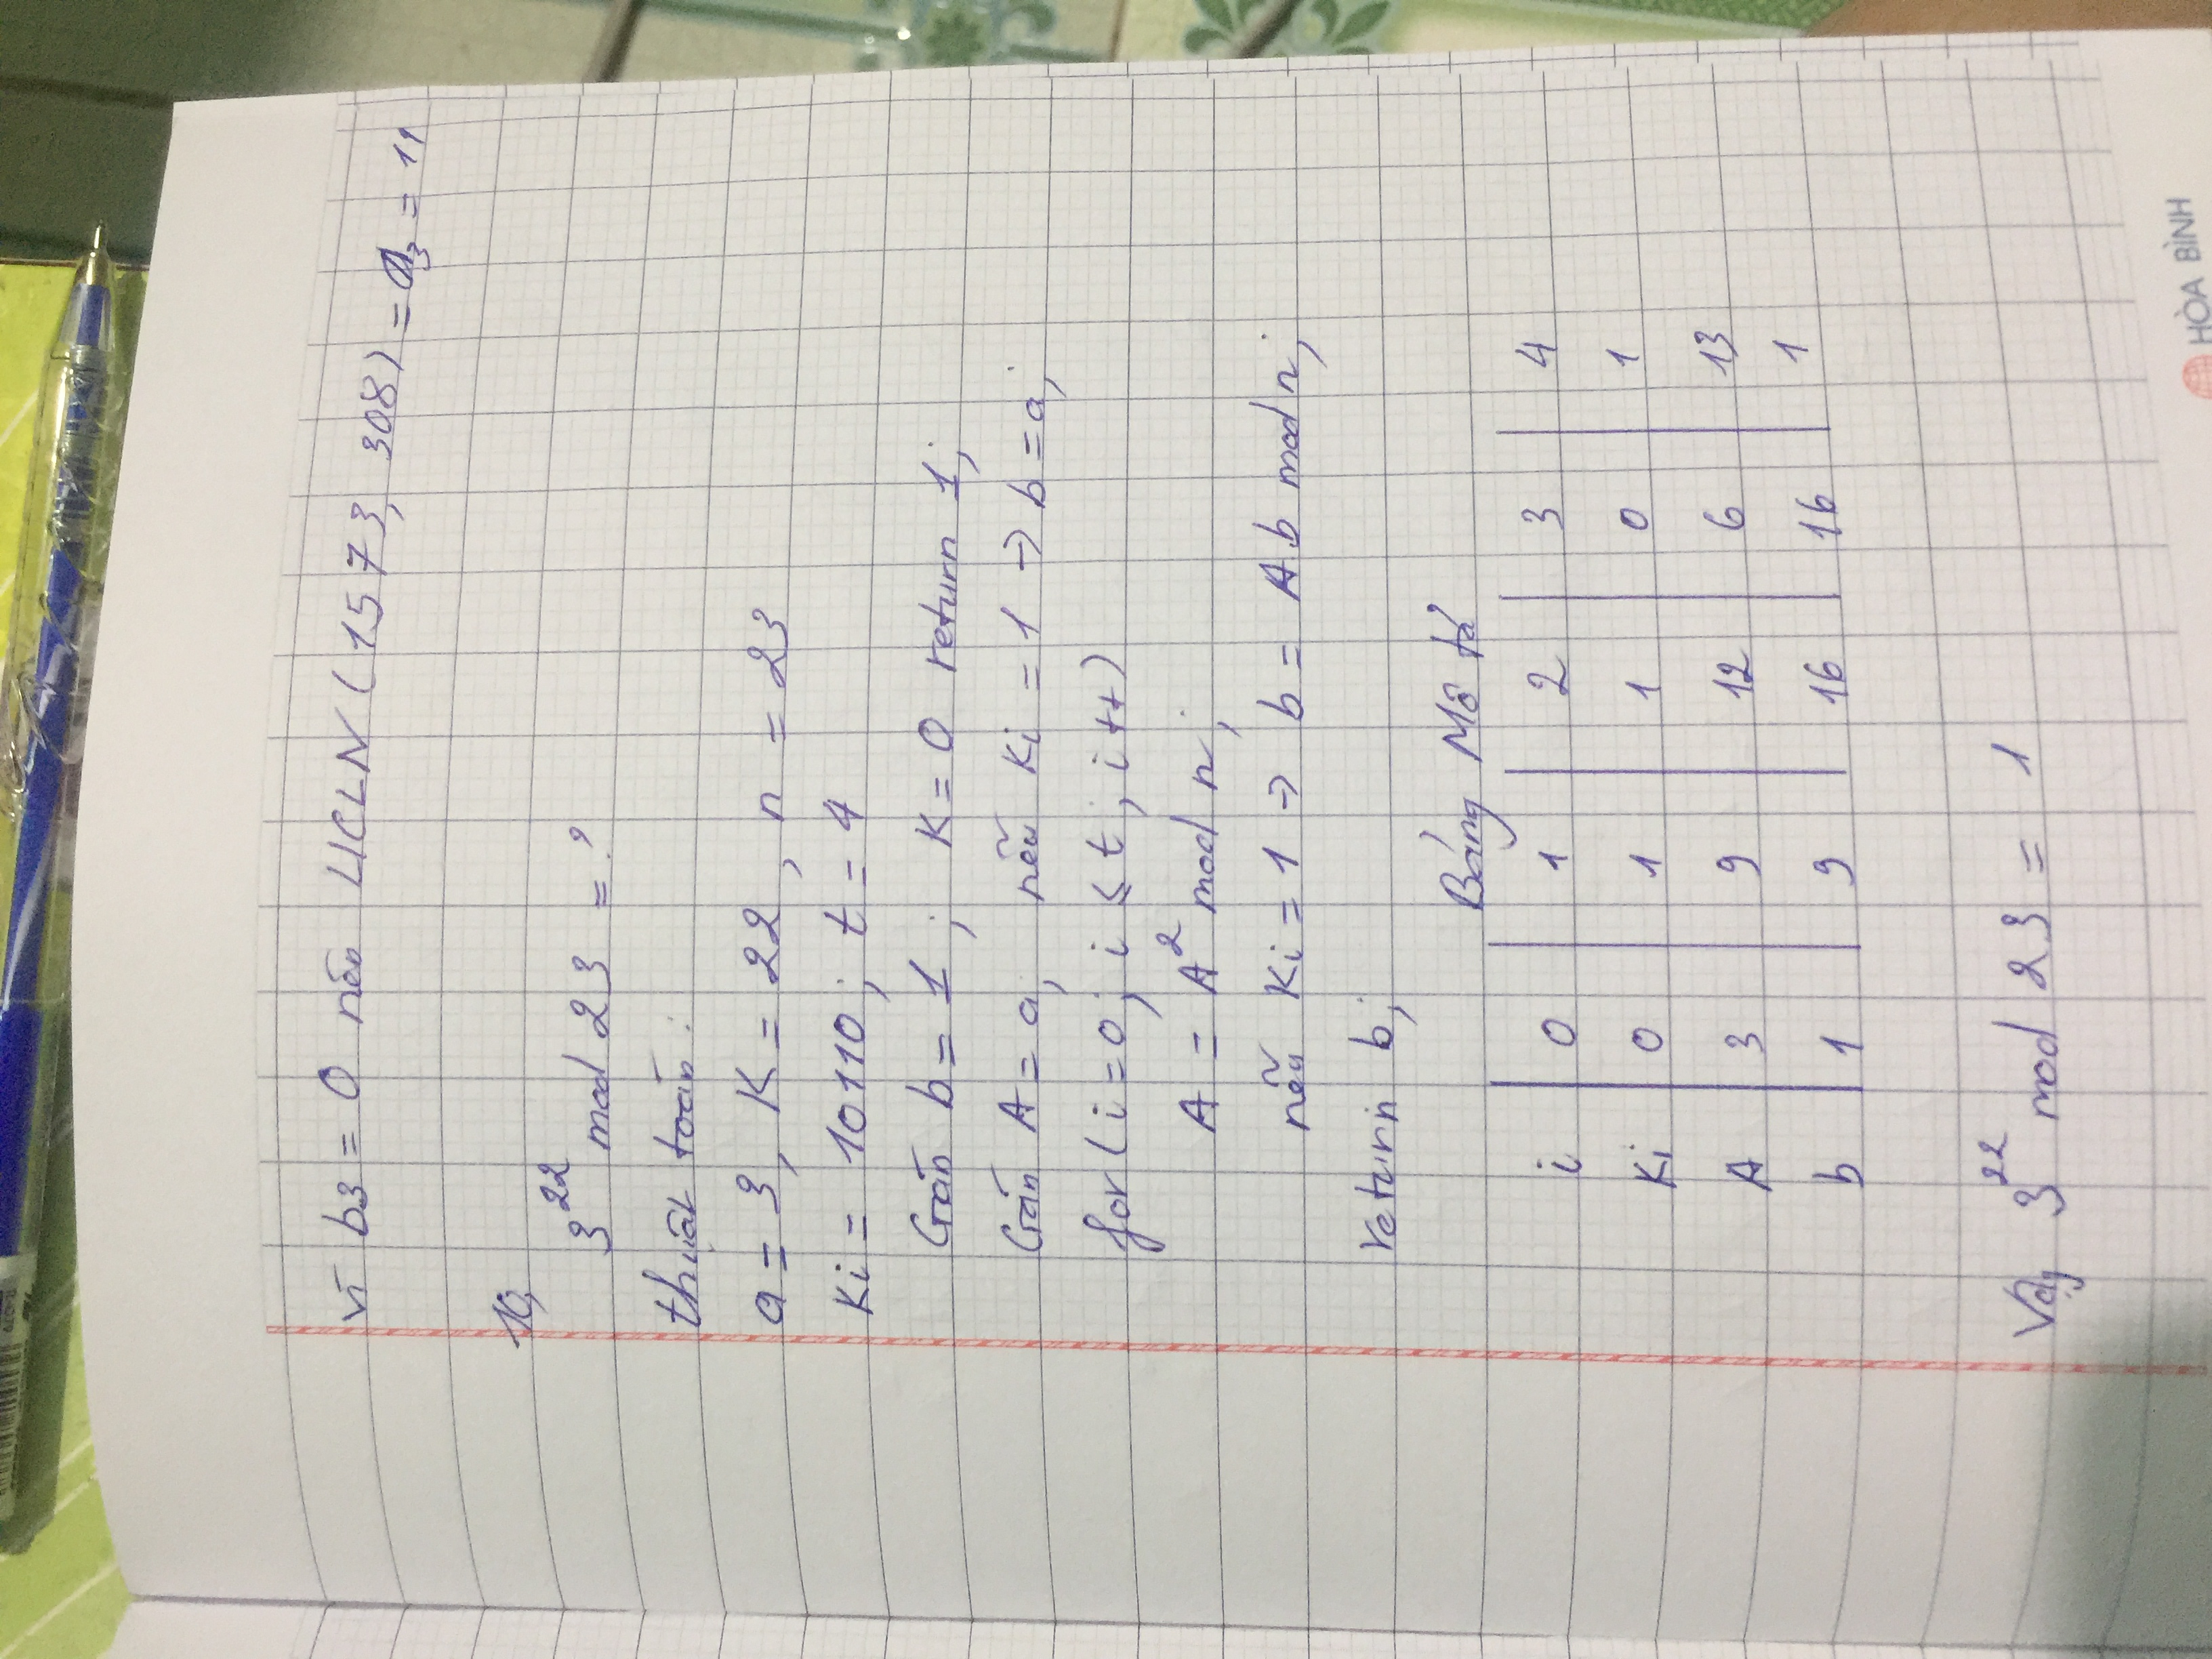 vì b3 = 0 nên ƯCLN (1573, 308) = a3 = 11
10,
3^22 mod 23 = ?
thuật toán :
a = 3, K = 22 , n = 23
Ki = 10110 ; t = 4
Gán b = 1 ; K = 0 return 1;
Gán A = a; nếu Ki = 1 → b = a;
for ( i = 0 ; i ≤ t ; i ++ )
A = A^2 mod n ;
nếu Ki = 1 → b = A.b mod n;
return b;
Bảng Mô tả
i 0 1 2 3 4
Ki 0 1 1 0 1
A 3 9 12 6 13
b 1 9 16 16 1
Vậy 3^22 mod 23 = 1
HÒA BÌNH